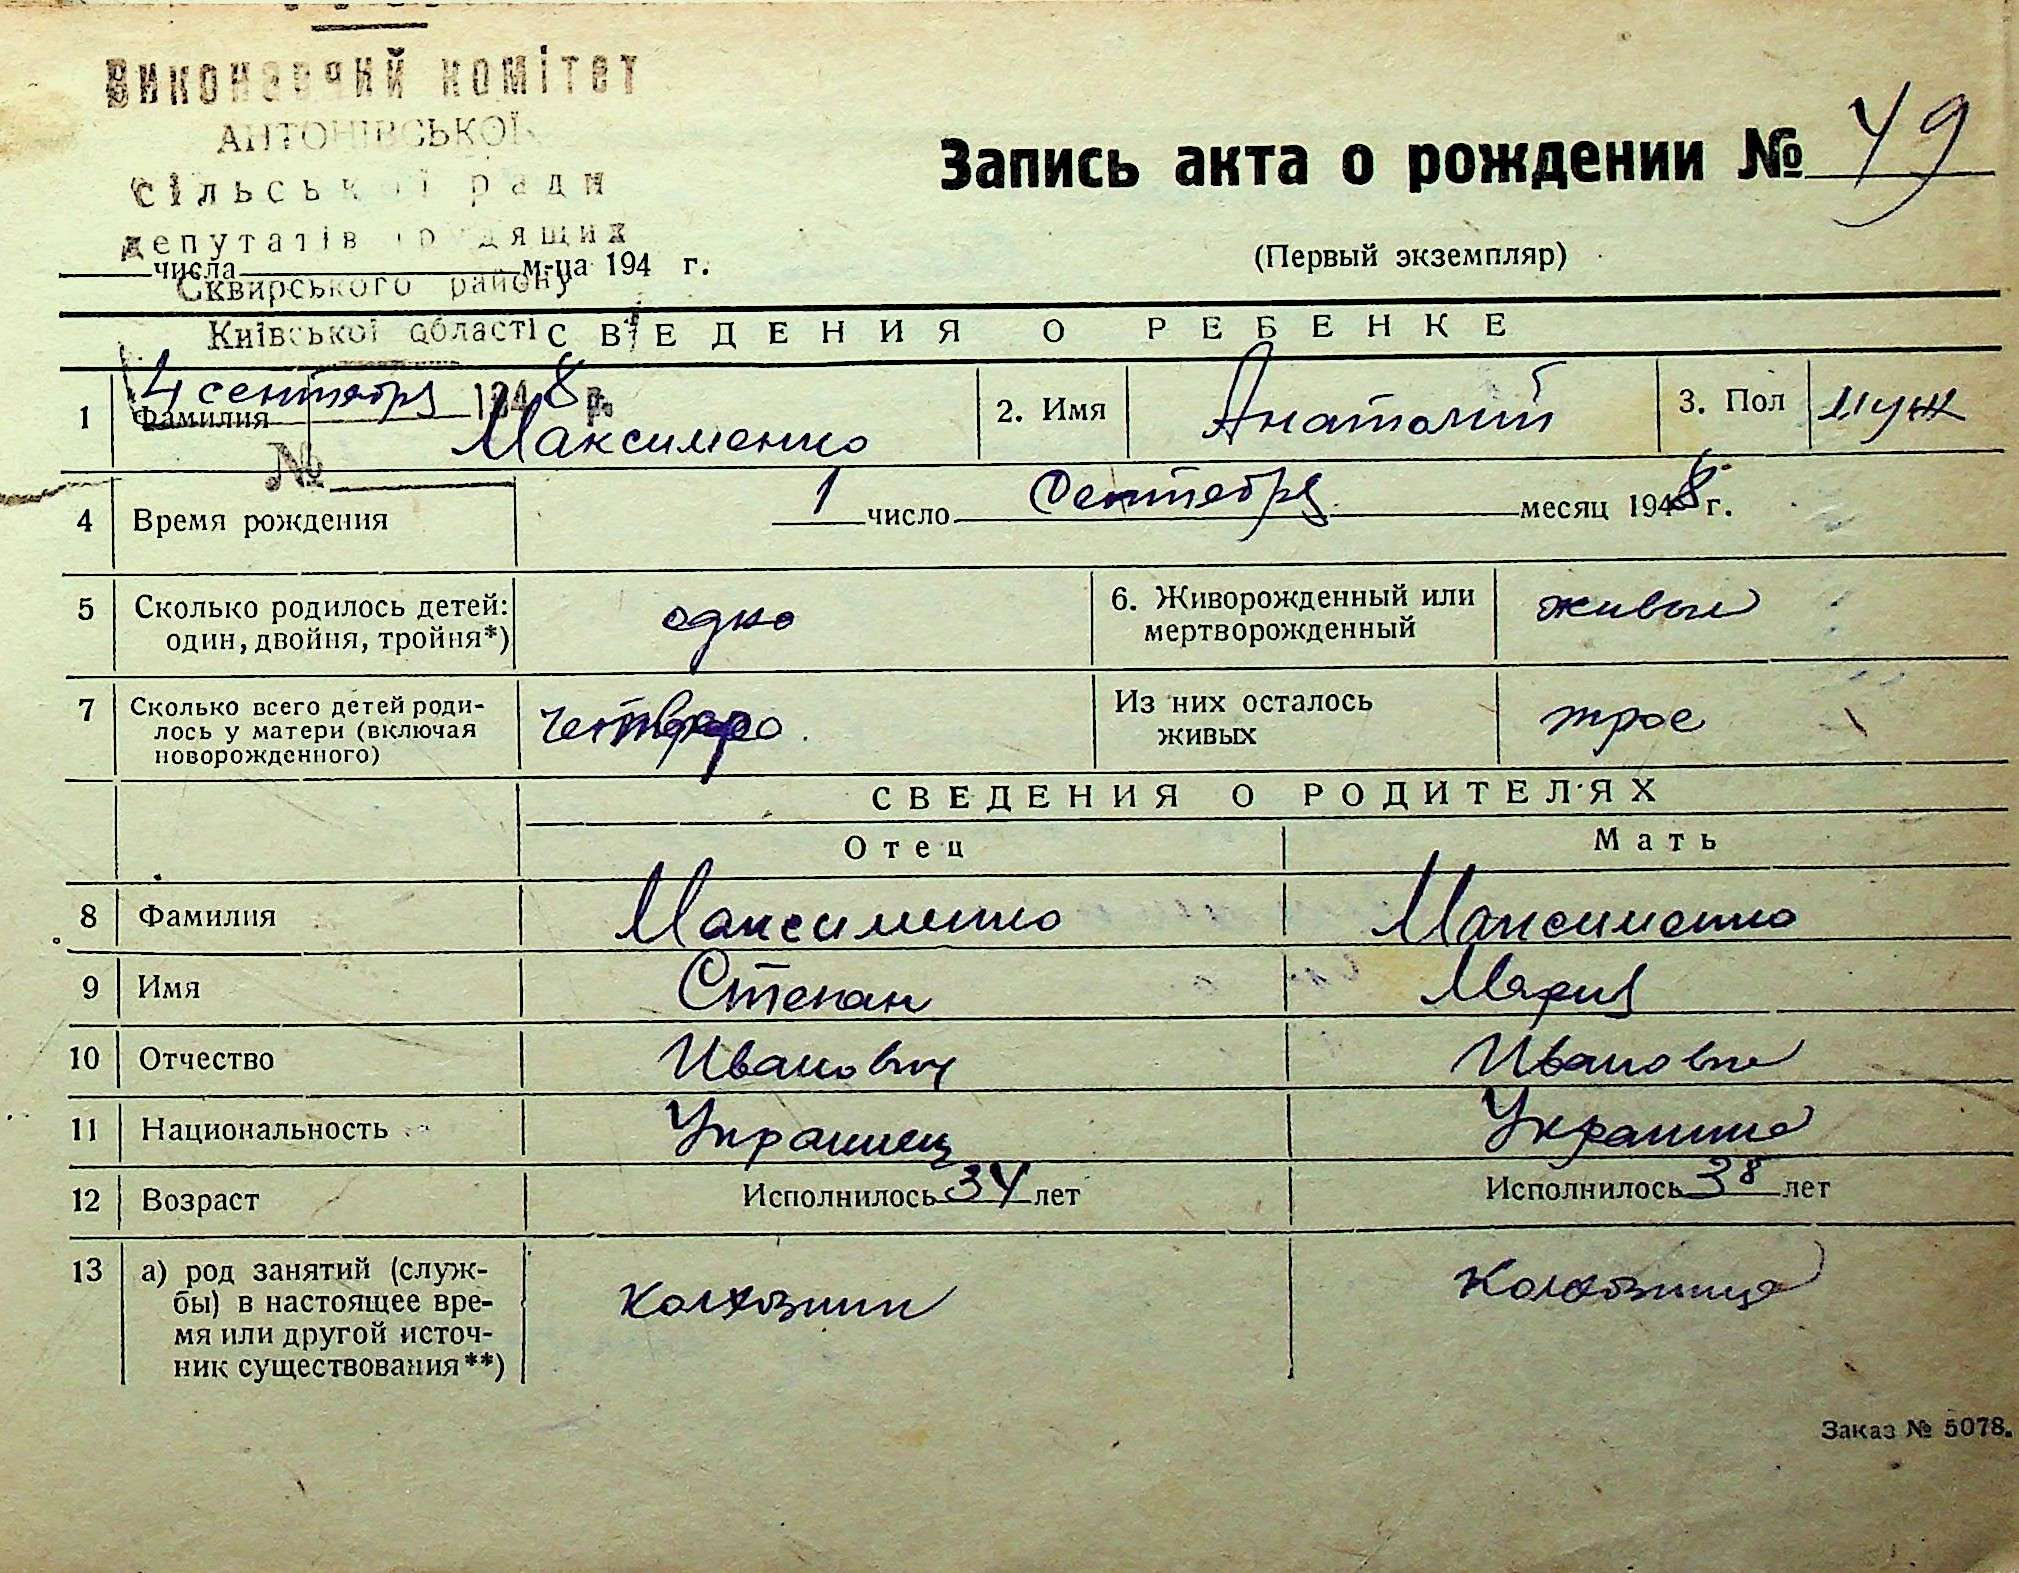 Виконавчий комітет
АНТОНІВСЬКОЇ
сільської ради
депутатів трудящих
Сквирського району
Київської області
4 сентября 1948 р.
№
числа м-ца 194 г.
Запись акта о рождении № 49
(Первый экземпляр)
СВЕДЕНИЯ О РЕБЕНКЕ
1 Фамилия Максименко 2. Имя Анатолий 3. Пол муж
4 Время рождения 1 число Сентября месяц 1948 г.
5 Сколько родилось детей: один, двойня, тройня*) одно 6. Живорожденный или мертворожденный живым
7 Сколько всего детей родилось у матери (включая новорожденного) четверо Из них осталось живых трое
СВЕДЕНИЯ О РОДИТЕЛЯХ
Отец Мать
8 Фамилия Максименко Максименко
9 Имя Степан Мария
10 Отчество Иванович Ивановна
11 Национальность Украинец Украинка
12 Возраст Исполнилось 34 лет Исполнилось 38 лет
13 а) род занятий (служ-
бы) в настоящее вре-
мя или другой источ-
ник существования**) колхозник Колхозница
Заказ № 5078.